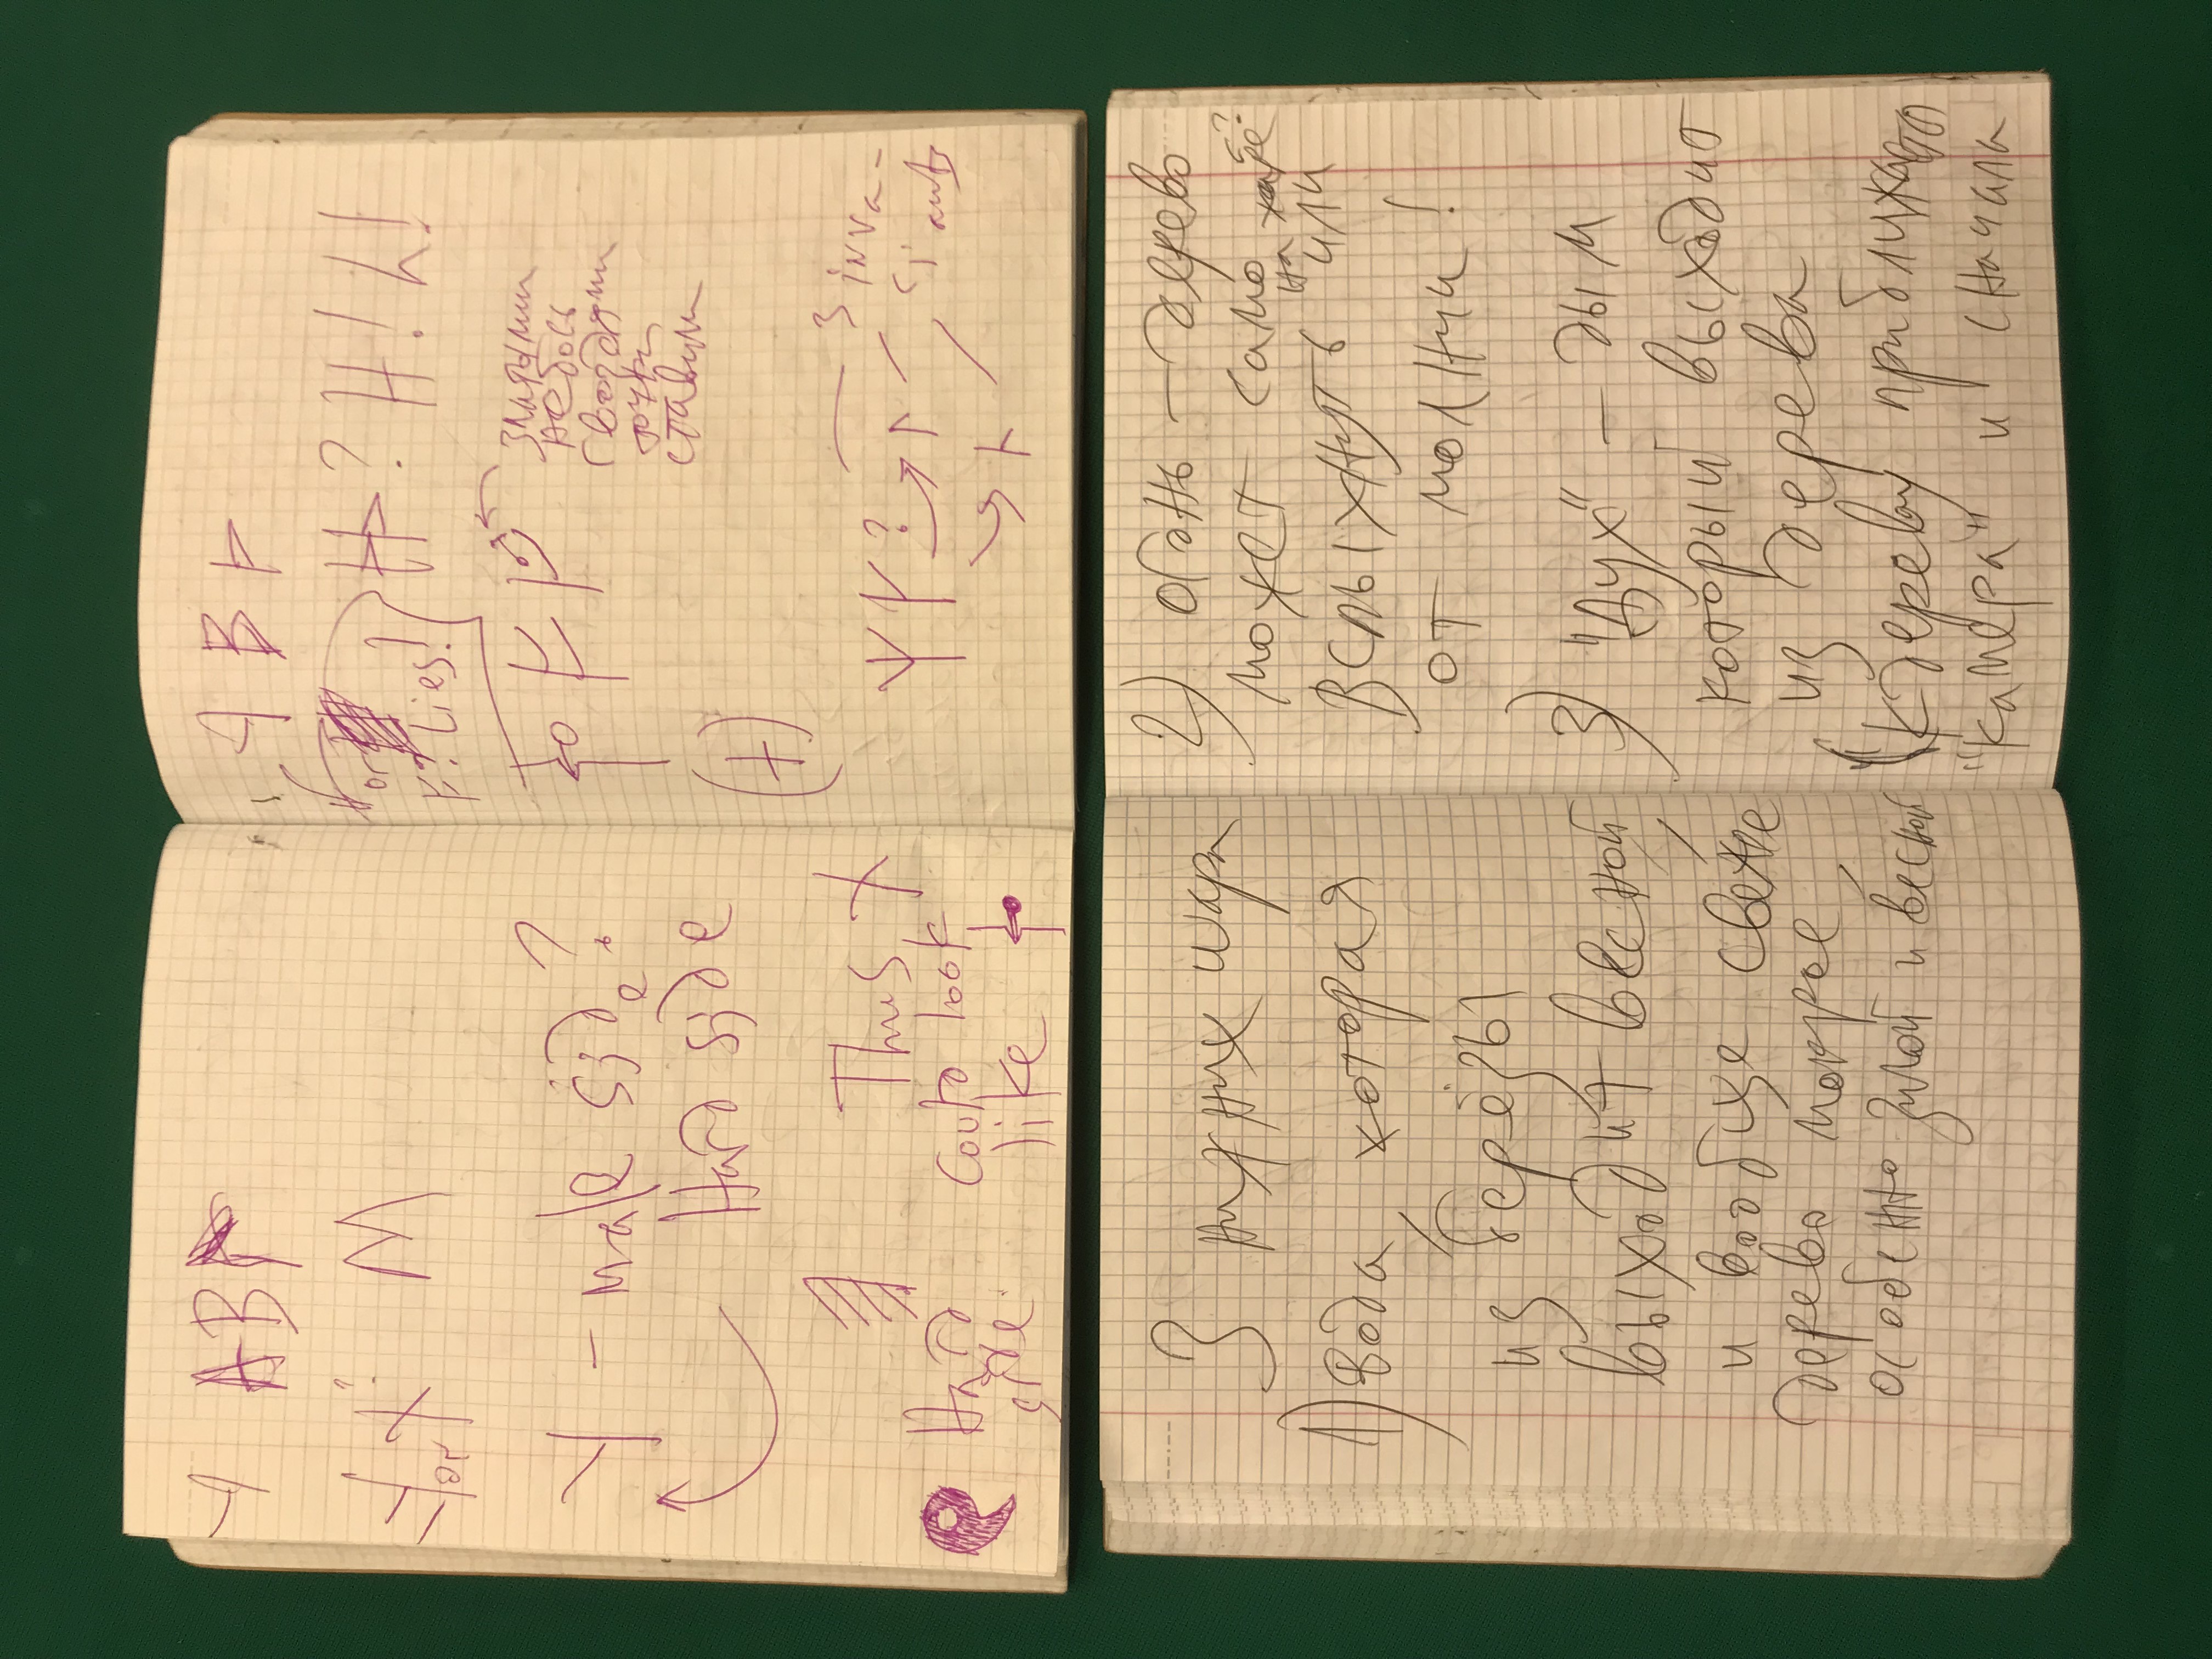 Y ABГ
Y or X? M
Y – male side?
Hard side
Thus, X
Hard
could look
side.
like
ꟼ B
or
H? H! h!
F? Lies!
златыми
небось
гвоздями
точки
ставили
(+)
3 inva-
?
riants
3 нижних шара
1) вода, которая
из берёзы
выходит весной,
и вообще свежее
дерево мокрое,
особенно зимой и весной
2) огонь – дерево
может само
на жаре?
вспыхнуть или
от молнии!
3) "Дух" – дым
который выходит
из дерева
(К дереву приближается
"камера" и сначала